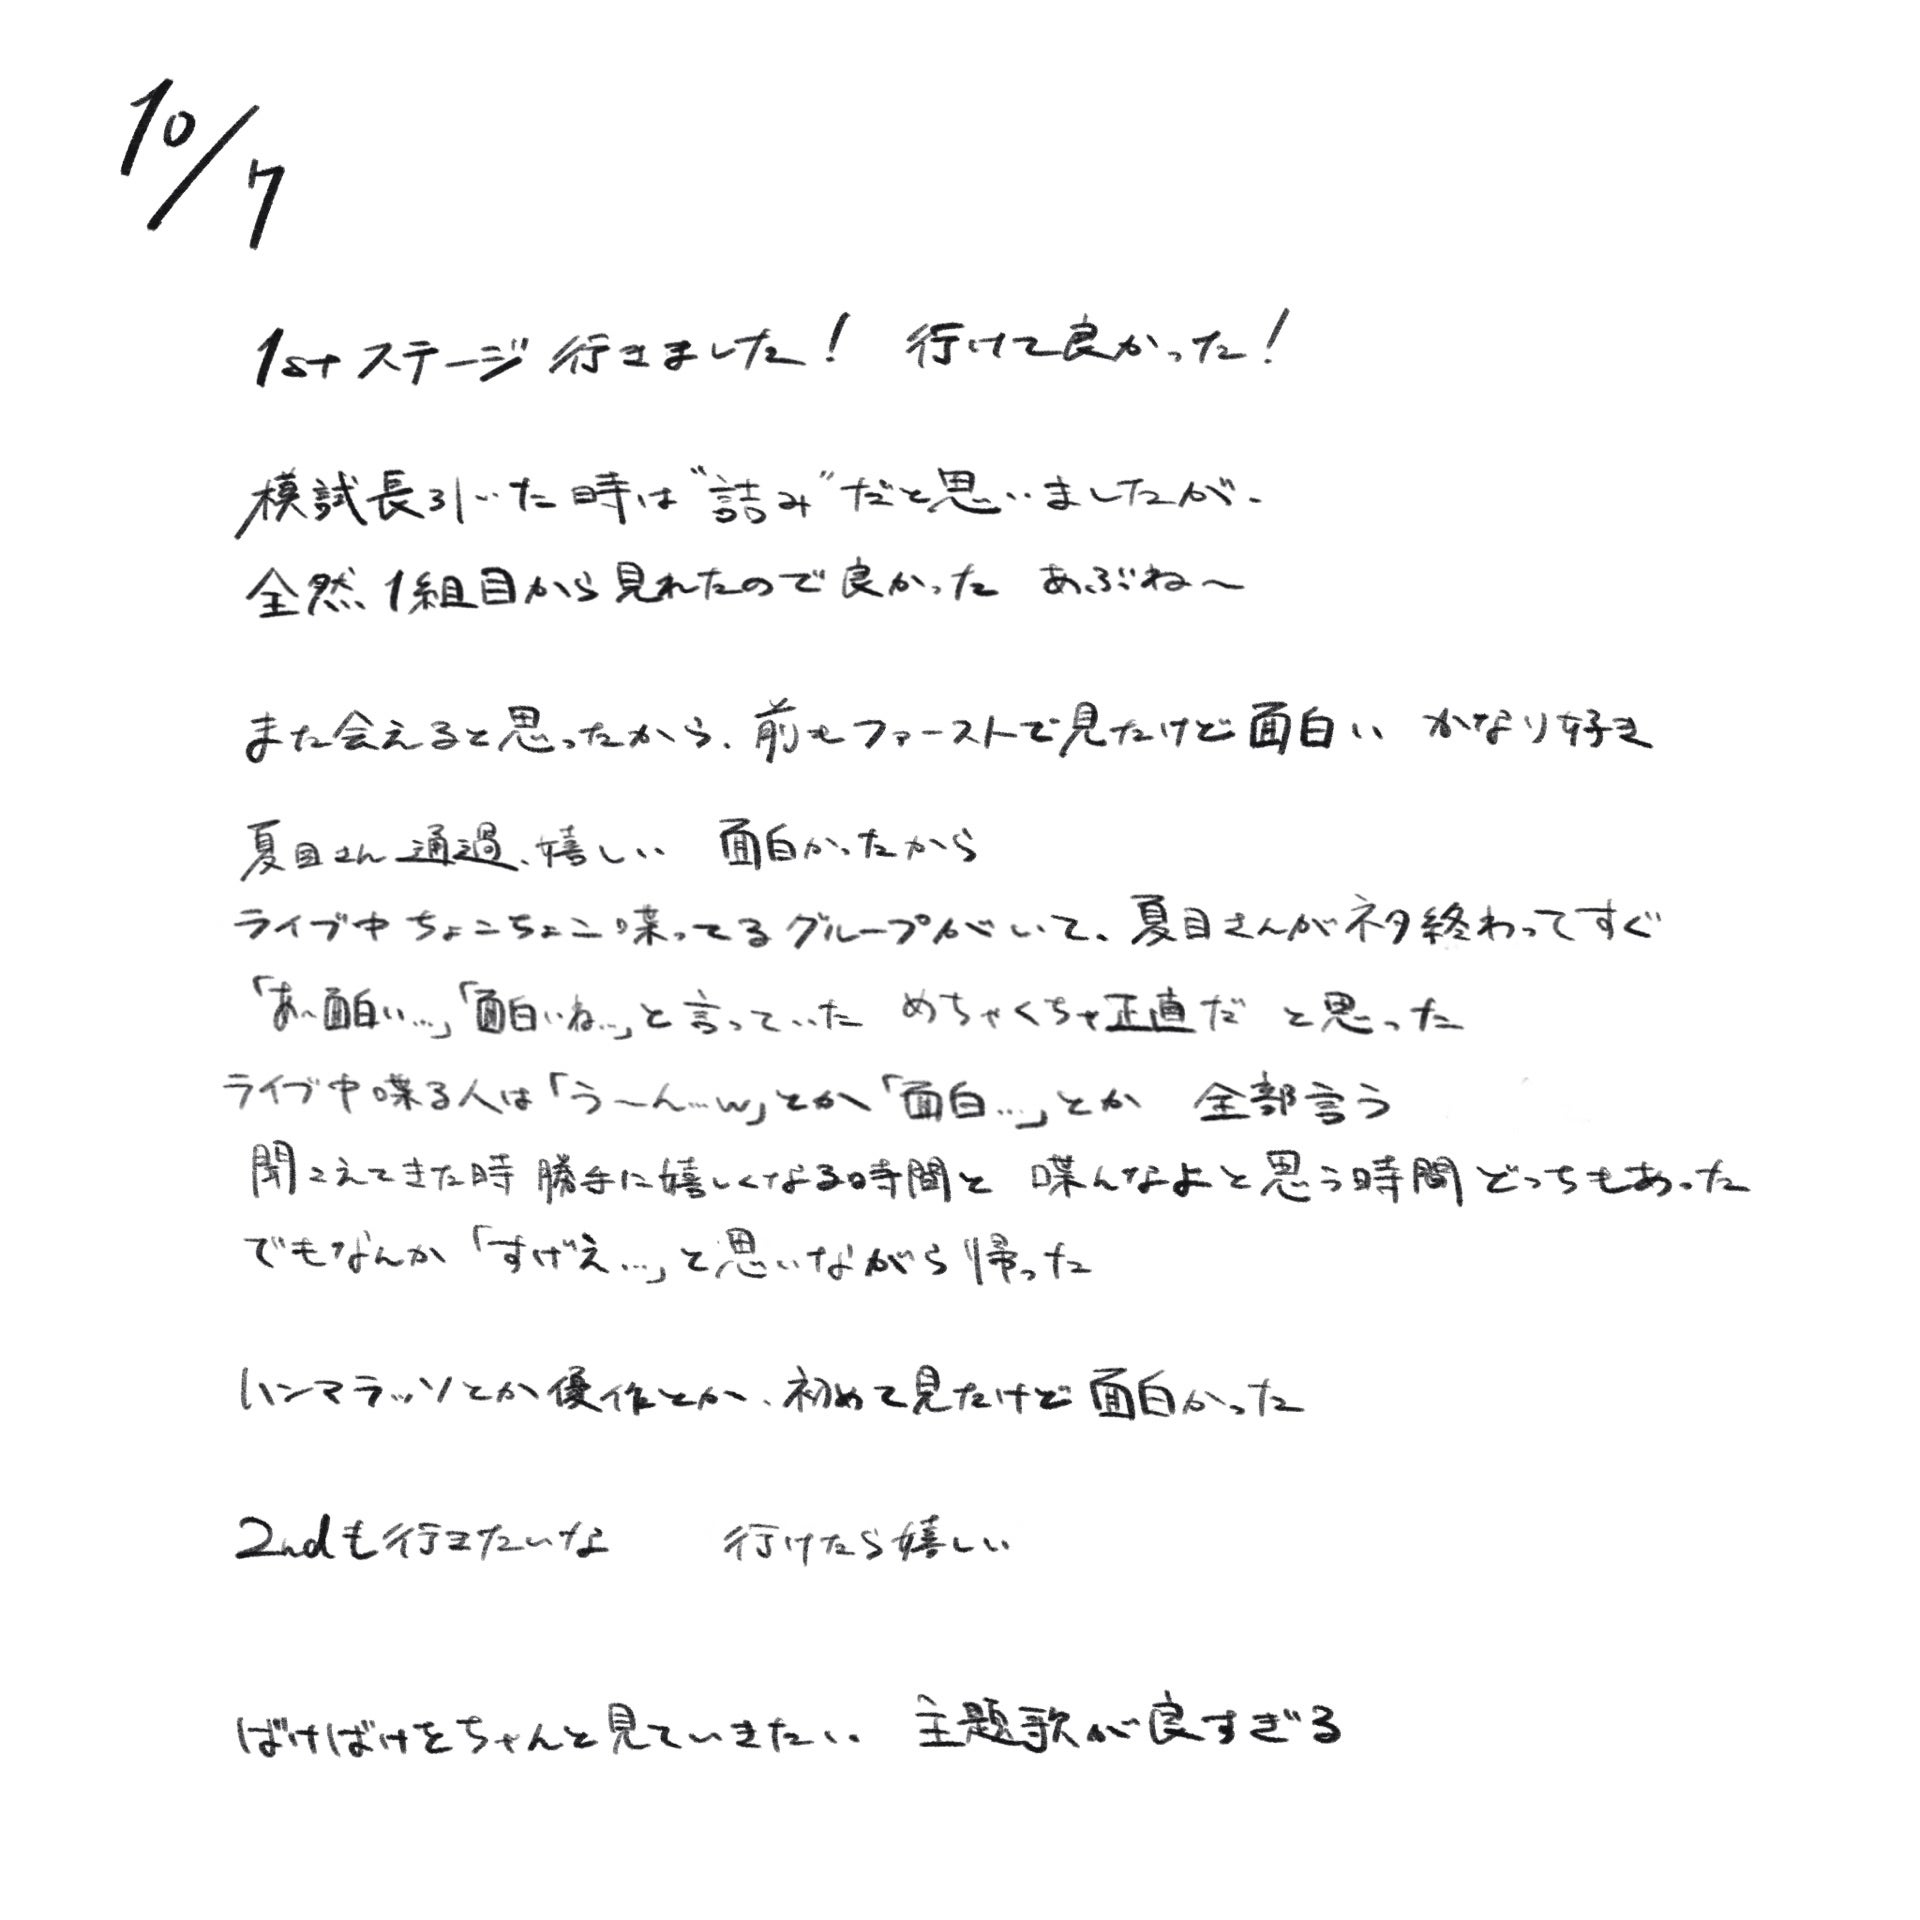 10/7
1stステージ行きました! 行けて良かった!
模試長引いた時は"詰み"だと思いましたが、
全然1組目から見れたので良かった あぶね〜
また会えると思ったから、前もファーストで見たけど面白い かなり好き
夏目さん通過、嬉しい 面白かったから
ライブ中ちょこちょこ喋ってるグループがいて、夏目さんがネタ終わってすぐ
「あ〜面白い…」「面白いね…」と言っていた めちゃくちゃ正直だ と思った
ライブ中喋る人は「う〜ん…w」とか「面白…」とか 全部言う
聞こえてきた時 勝手に嬉しくなる時間と 喋んなよと思う時間どっちもあった
でもなんか「すげえ…」と思いながら帰った
ハンマラッソとか優作とか、初めて見たけど面白かった
2ndも行きたいな 行けたら嬉しい
ばけばけをちゃんと見ていきたい。 主題歌が良すぎる